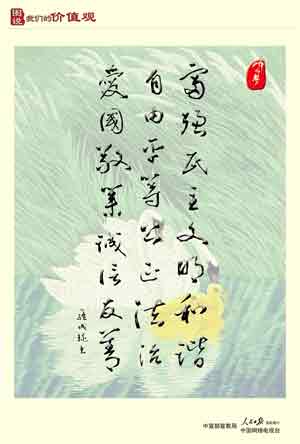 图说我们的价值观
富强民主文明和谐
自由平等公正法治
爱國敬業誠信友善
中宣部宣教局
人民日报
中国网络电视台